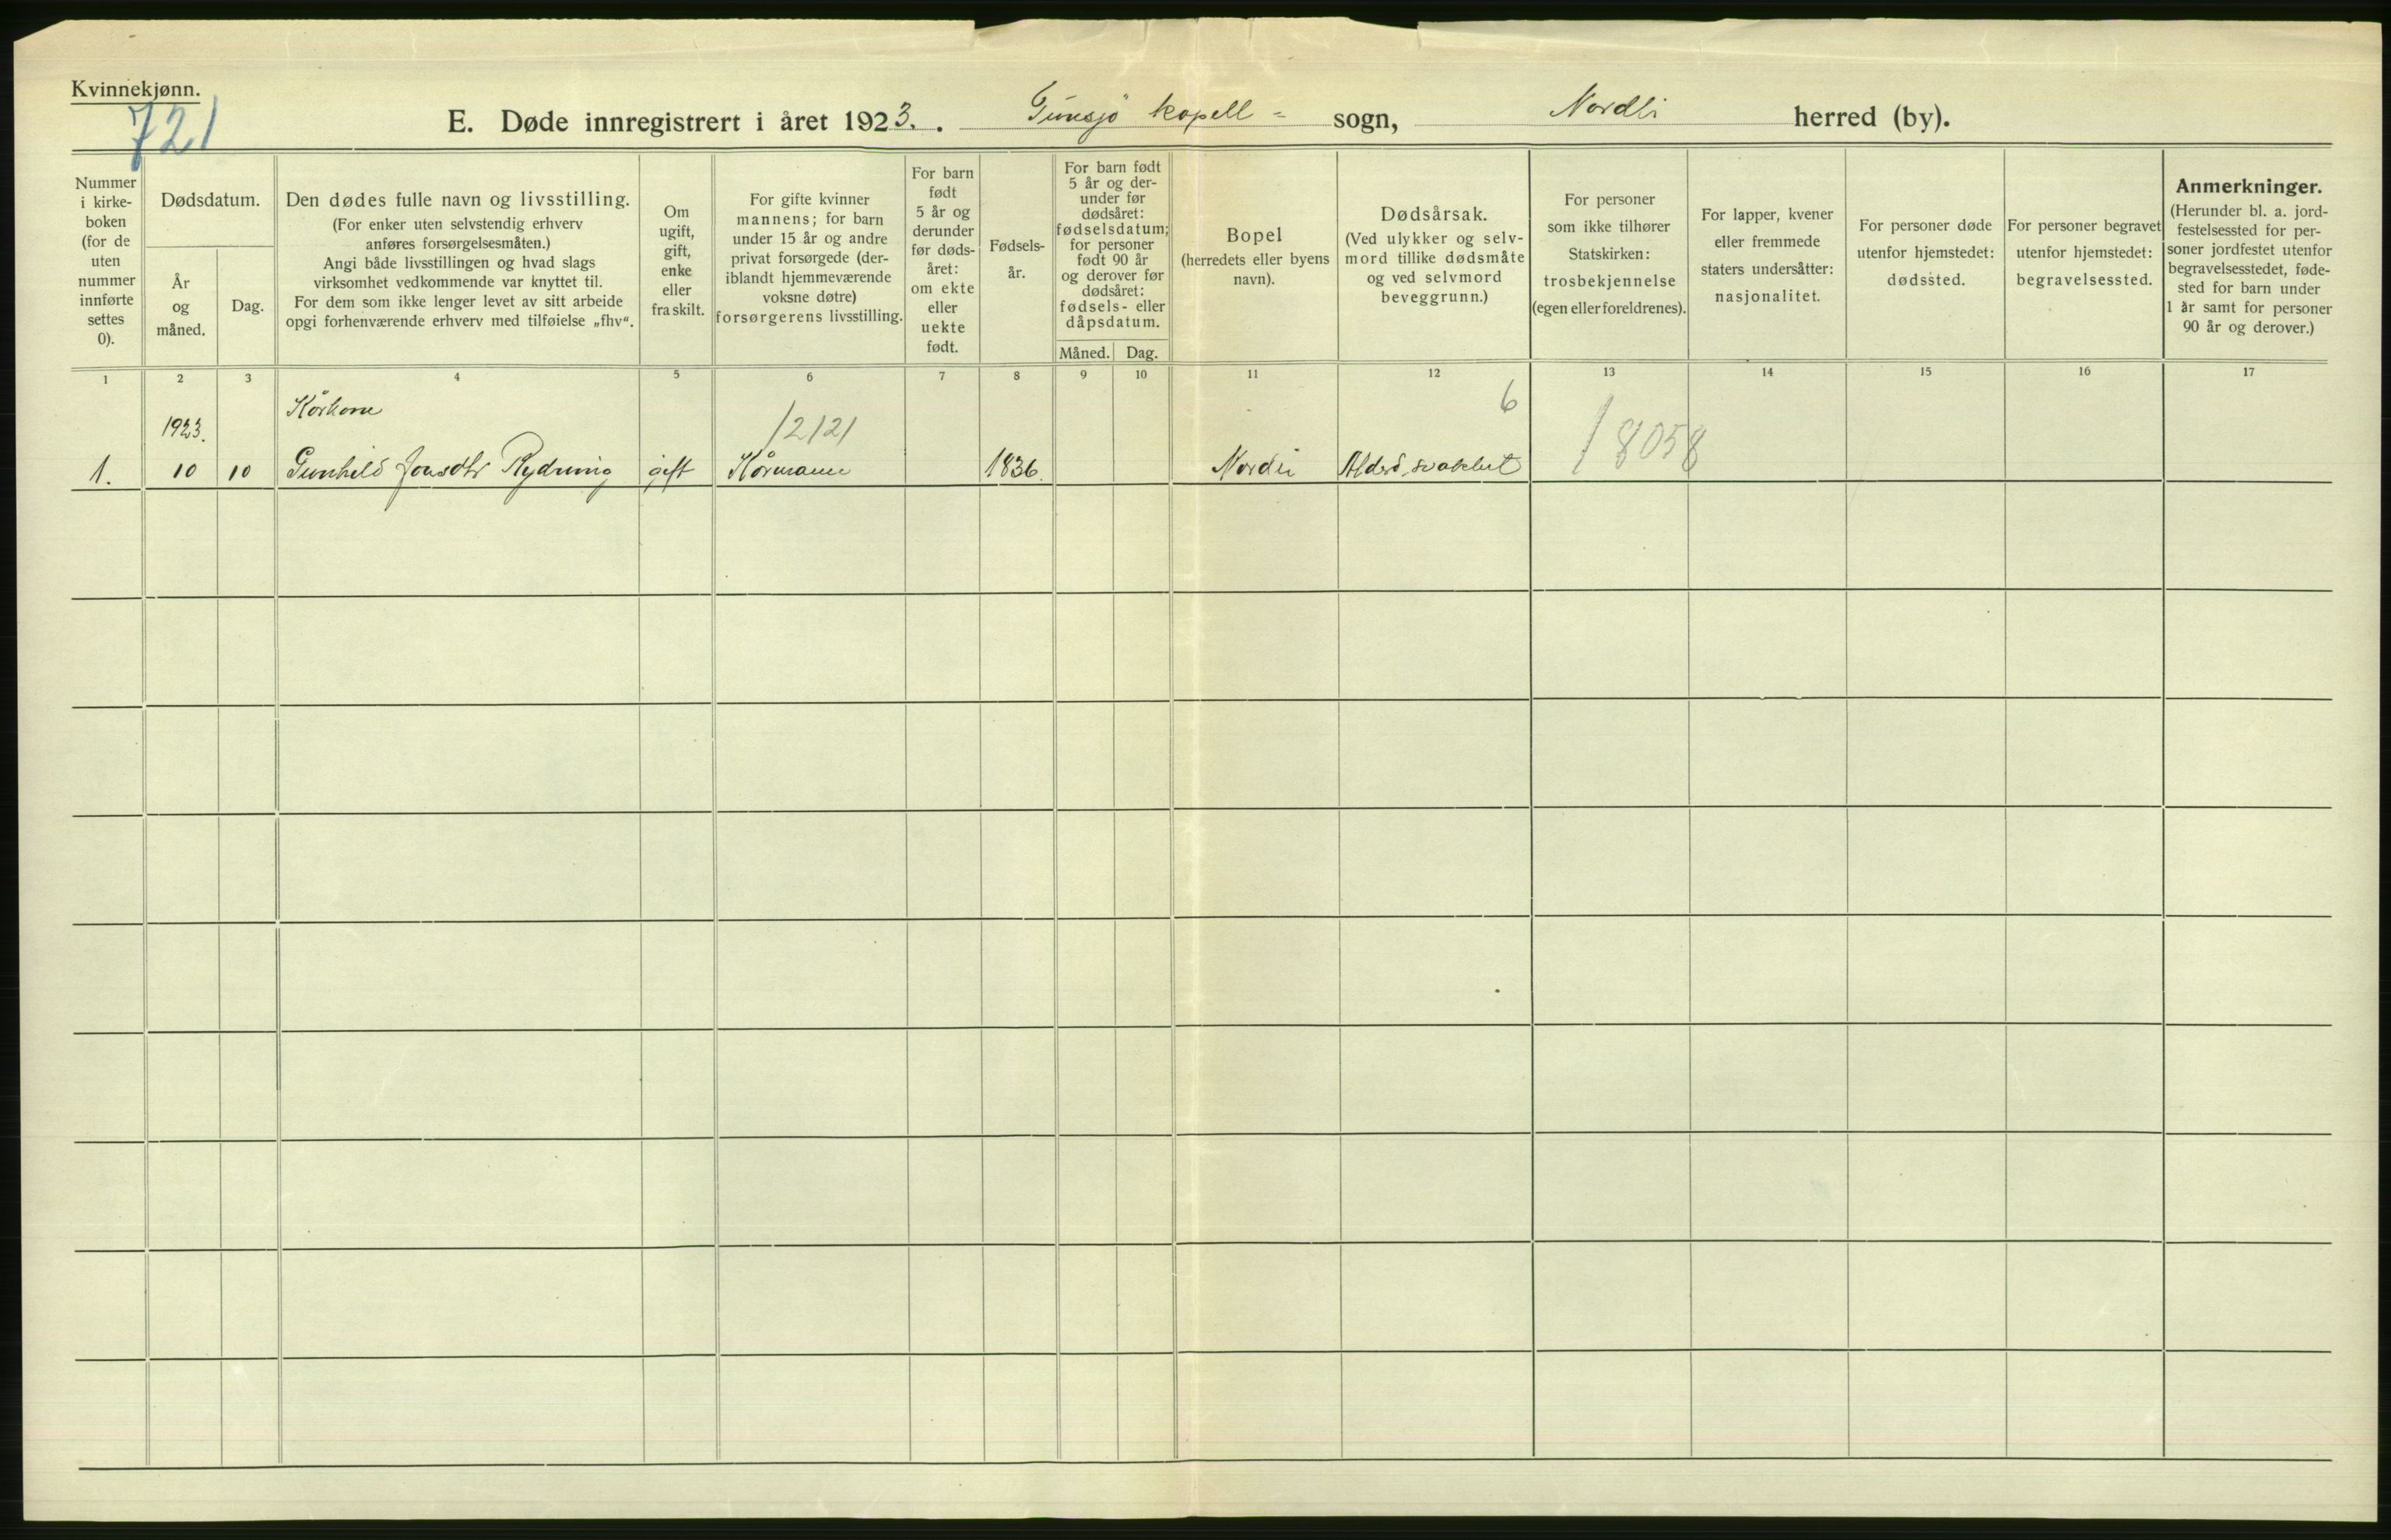 Kvinnekjønn.
721
E. Døde innregistrert i året 1923. . Tunsjö kapell- sogn, Nordli herred (by).
Nummer i kirke-boken (for de uten nummer innførte settes 0).
Dødsdatum.
År og måned.
Dag.
Den dødes fulle navn og livsstilling.
(For enker uten selvstendig erhverv
anføres forsørgelsesmåten.)
Angi både livsstillingen og hvad slags
virksomhet vedkommende var knyttet til.
For dem som ikke lenger levet av sitt arbeide
opgi forhenværende erhverv med tilføielse „fhv“.
Om
ugift,
gift,
enke
eller
fraskilt.
For gifte kvinner
mannens; for barn
under 15 år og andre
privat forsørgede (der-
iblandt hjemmeværende
voksne døtre)
forsørgerens livsstilling.
For barn
født
5 år og
derunder
før døds-
året:
om ekte
eller
uekte
født.
Fødsels-
år.
For barn født
5 år og der-
under før
dødsåret:
fødselsdatum;
for personer
født 90 år
og derover før
dødsåret:
fødsels- eller
dåpsdatum.
Måned. Dag.
Bopel
(herredets eller byens
navn).
Dødsårsak.
(Ved ulykker og selv-
mord tillike dødsmåte
og ved selvmord
beveggrunn.)
For personer
som ikke tilhører
Statskirken:
trosbekjennelse
(egen eller foreldrenes).
For lapper, kvener
eller fremmede
staters undersåtter:
nasjonalitet.
For personer døde
utenfor hjemstedet:
dødssted.
For personer begravet
utenfor hjemstedet:
begravelsessted.
Anmerkninger.
(Herunder bl. a. jord-
festelsessted for per-
soner jordfestet utenfor
begravelsesstedet, føde-
sted for barn under
1 år samt for personer
90 år og derover.)
1 2 3 4 5 6 7 8 9 10 11 12 13 14 15 16 17
Kårkone
1923. 12121 6 18058
1. 10 10 Gunhild Jonsdtr Rydning gift Kårmann 1836. Nordli Alderd.svakhet